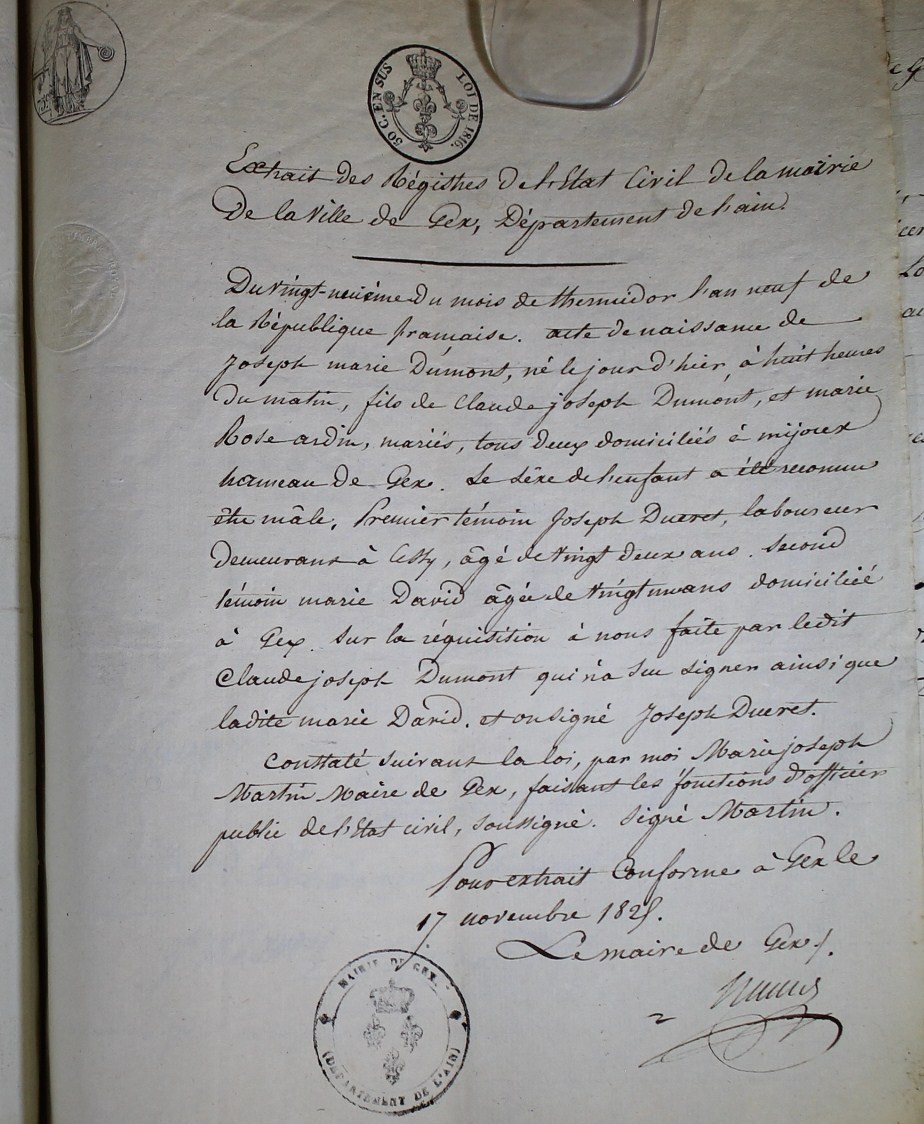 50 C. EN SUS
LOI DE 1816.
Extrait des Régistres de l'Etat Civil de la mairie
De la Ville de Gex, Département de l'ain.
Du vingt-neuvième du mois de thermidor l'an neuf de
la République francaise. acte de naissance de
Joseph marie Dumont, né le jour d'hier, à huit heures
du matin, fils de Claude joseph Dumont, et marie
Rose ardin, mariés, tous deux domiciliés à mijoux
hameau de Gex. Le séxe de l'enfant a été reconnu
être mâle, Premier témoin Joseph Dueret, laboureur
demeurant à Cessy, âgé de vingt deux ans. Second
témoin marie David âgée de vingt un ans domiciliée
à Gex. Sur la réquisition à nous faite par ledit
Claude joseph Dumont qui n'a su signer ainsi que
ladite marie David, et on signé Joseph Dueret.
Constaté suivant la loi, par moi Marie joseph
Martin Maire de Gex, faisant les fonctions d'officier
public de l'Etat civil, soussigné. Signé Martin.
Pour extrait Conforme à Gex le
17 novembre 1825.
Le maire de Gex
MAIRIE DE GEX
(DÉPARTEMENT DE L'AIN)